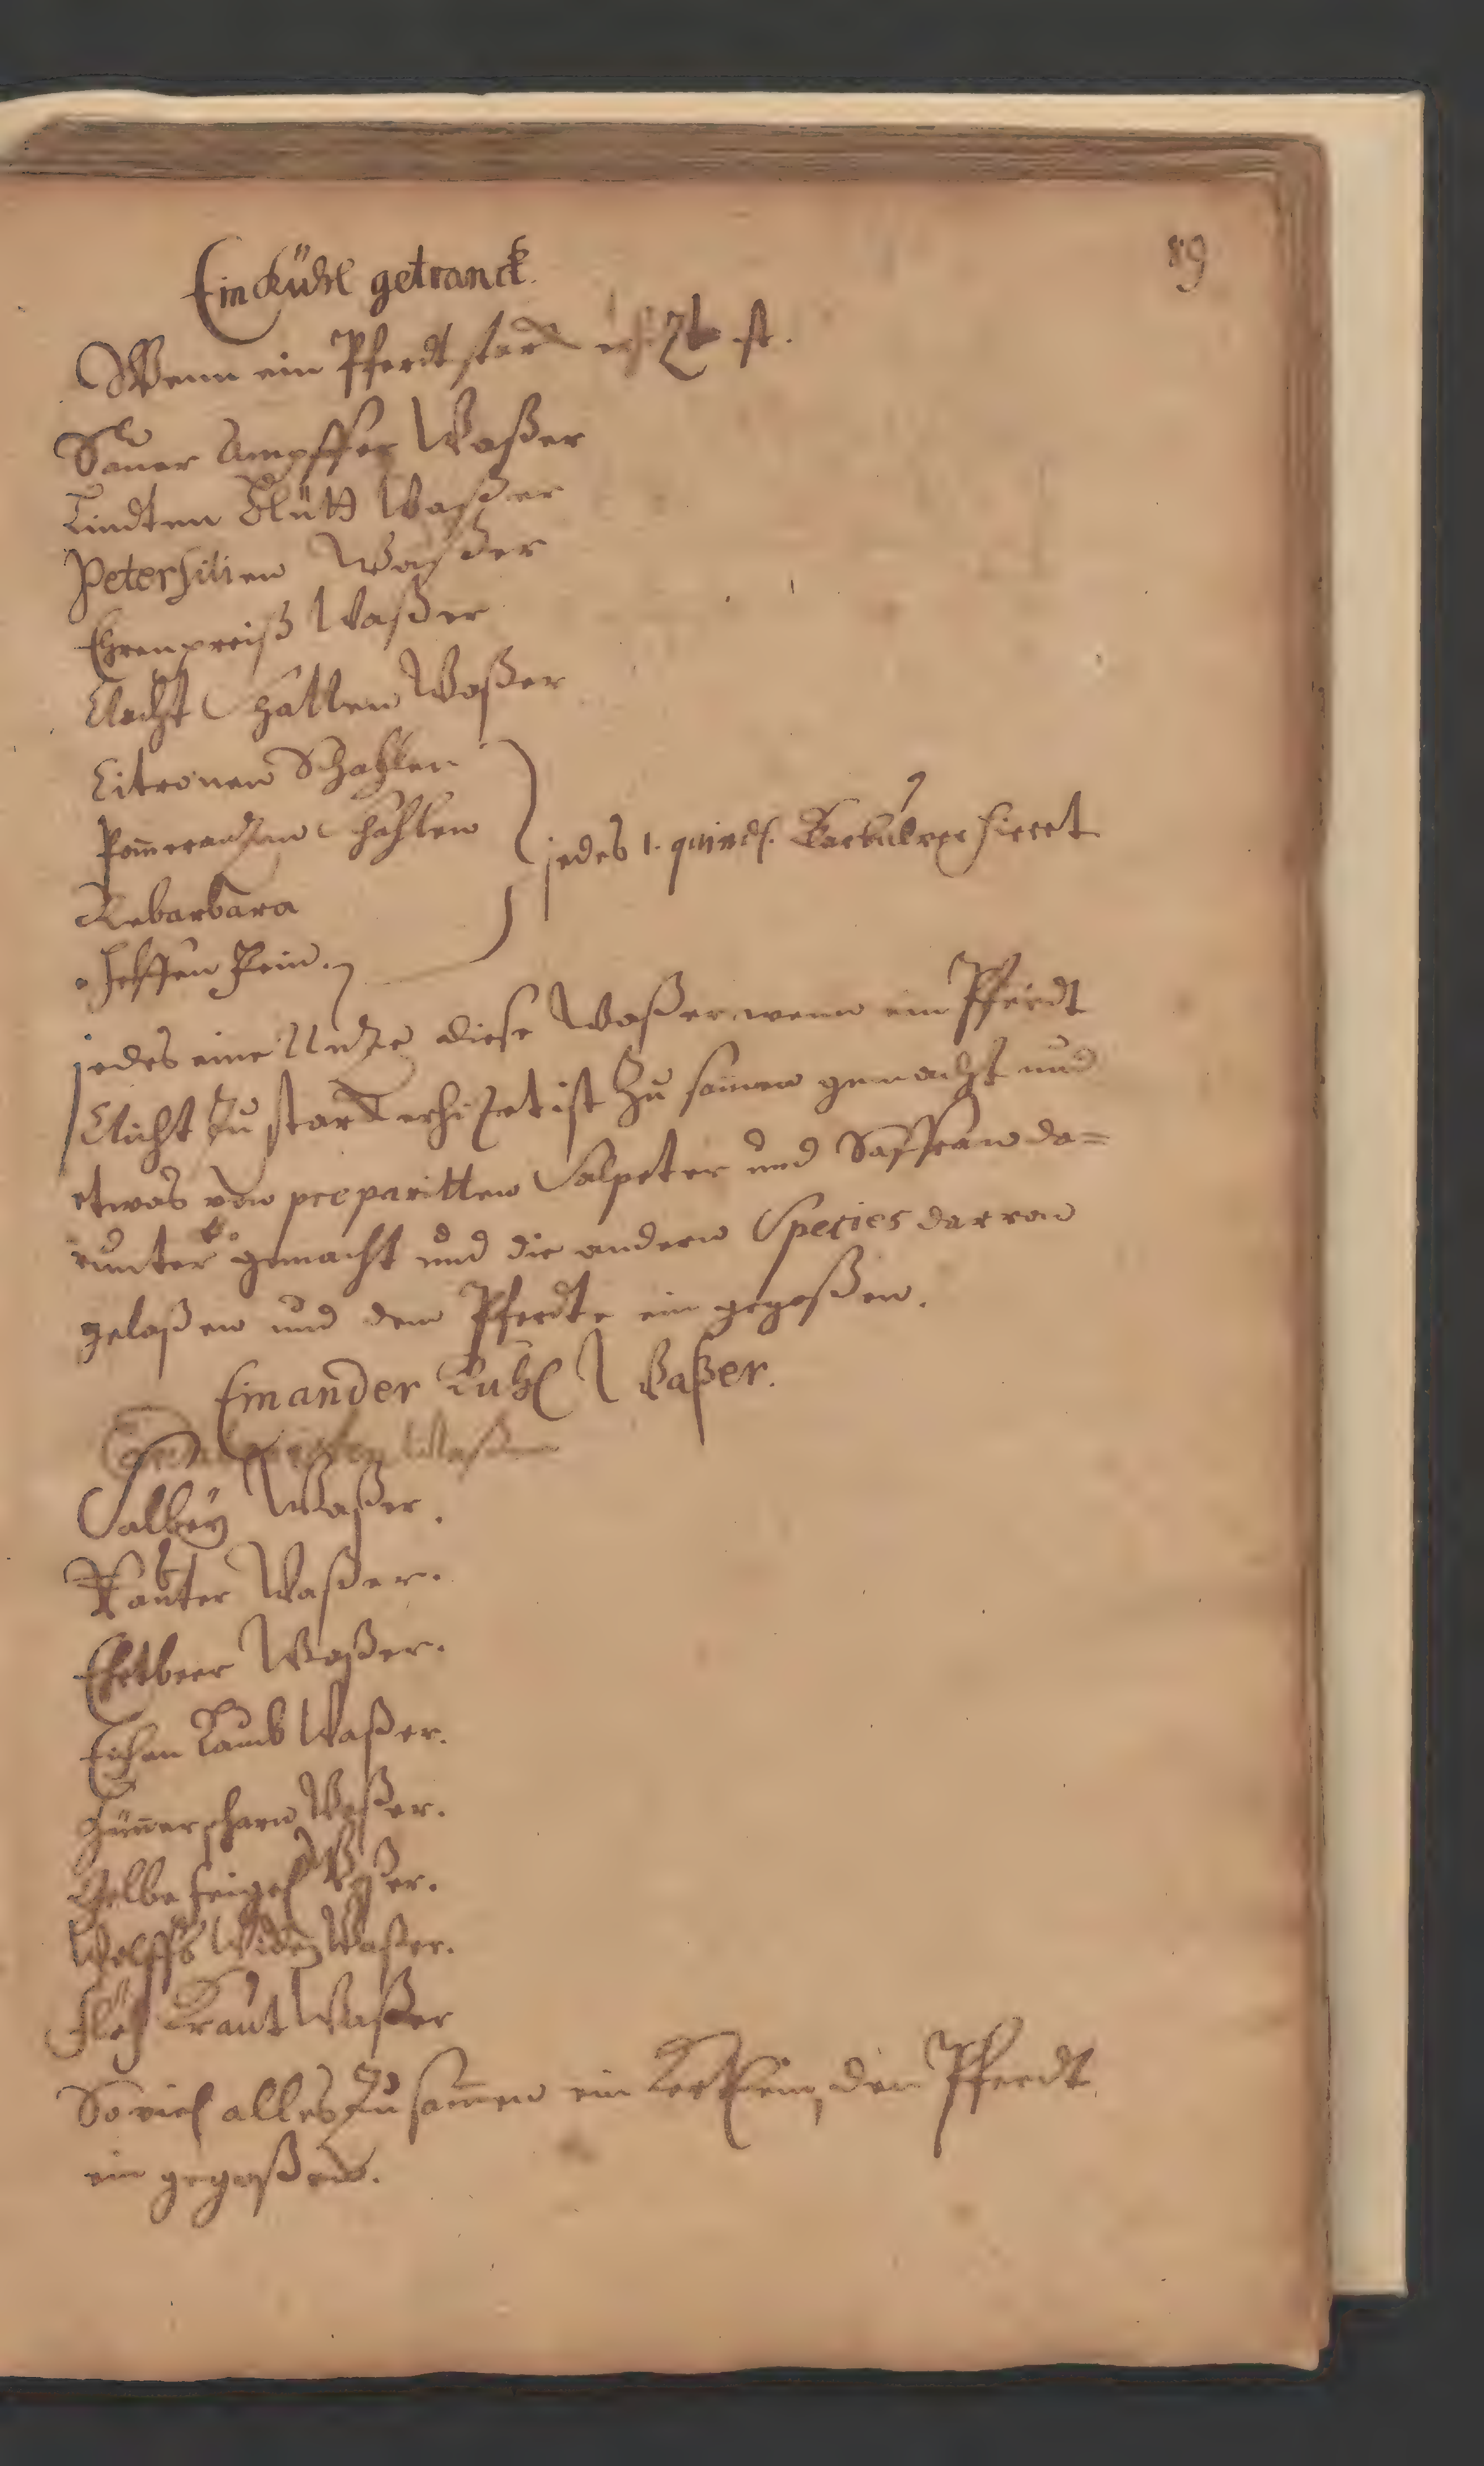 89
Ein Kühl getranck.
Wenn ein Pferdt starck erhizt ist.
Sauer Ampffer Waßer
Lindten Blütt Waßer
Petersilien Waßer
Ehrenpreiß Waßer
Nacht Schatten Waßer
Citronen Schahlen
Pom̄erantzen Schahlen
Rebarbara
Helffen Bein.
jedes 1. quindl.
jedes eine Untze diese Waßer wenn ein Pferdt
Nicht zu starck erhizet ist Zu sam̄en gemacht und
etwas von preparitten Salpeter und Saffran da=
runter gemacht und die andern Species darvon
gelaßen und dem Pferdte ein gegoßen.
Ein ander Kuhl Waßer.
Salbey Waßer.
Rauter Waßer.
Ehrtbeer Waßer.
Eichen Laub Waßer.
Hüner Waßer.
Gelbe feigel Waßer.
Wolffs Waßer.
Flöh Kraut Waßer
So viel alles Zu sam̄en ein den Pferdt
ein gegoßen.